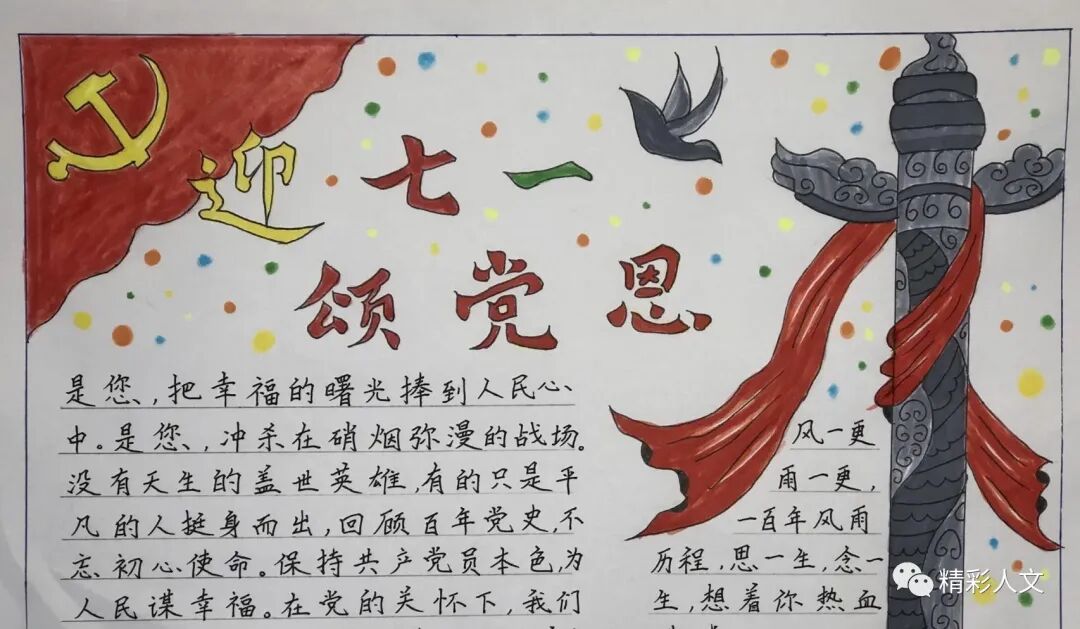 迎七一
颂党恩
是您,把幸福的曙光捧到人民心
中。是您,冲杀在硝烟弥漫的战场。
没有天生的盖世英雄,有的只是平
凡的人挺身而出,回顾百年党史,不
忘初心使命。保持共产党员本色,为
人民谋幸福。在党的关怀下,我们
风一更
雨一更,
一百年风雨
历程,思一生,念一
生,想着你热血
精彩人文